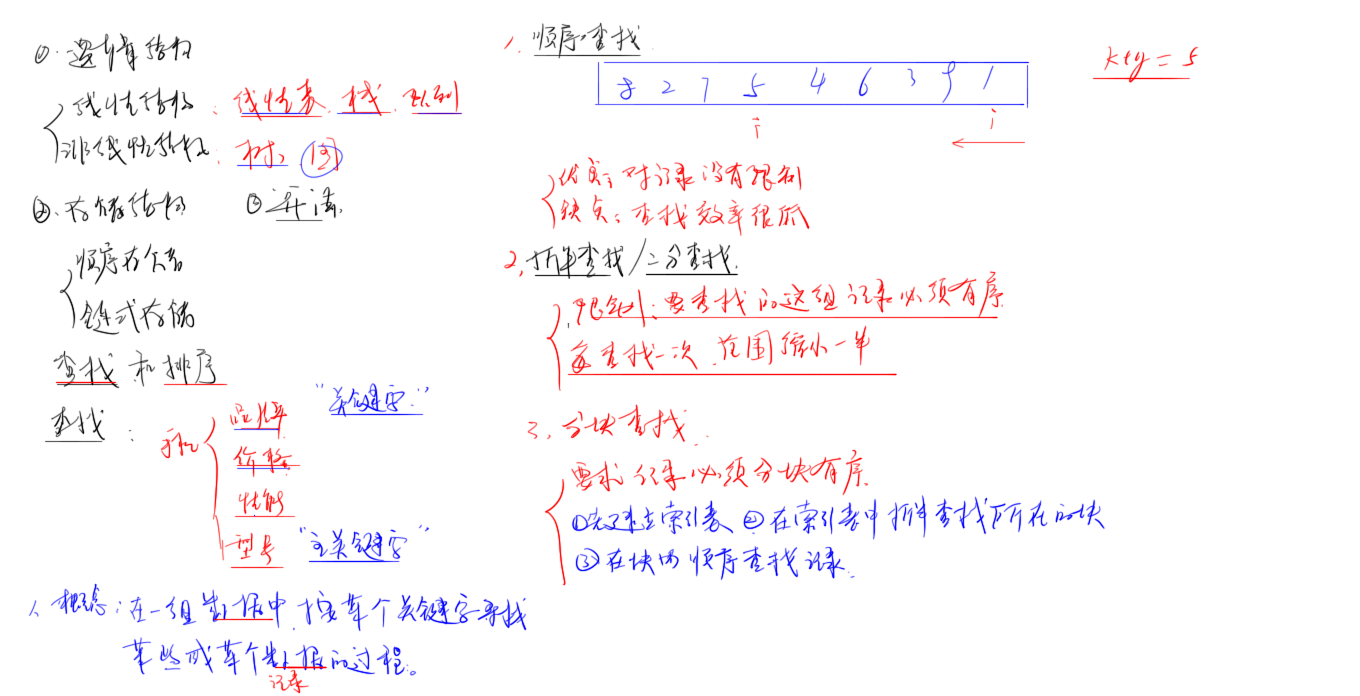 ①. 逻辑结构
线性结构: 线性表、栈、队列
非线性结构: 树、图
②. 存储结构 ③ 算法
顺序存储
链式存储
查找和排序
查找: 手机
品牌 "关键字"
价格
性能
型号 "主关键字"
1、概念: 在一组数据中,按某个关键字寻找
某些或某个数据的过程。
记录
1、顺序查找
8 2 7 5 4 6 3 9 1
i i
key = 5
优点: 对记录没有限制
缺点: 查找效率很低
2、折半查找/二分查找
限制: 要查找的这组记录必须有序
每查找一次,范围缩小一半
3、分块查找
要求记录必须分块有序
①先建立索引表 ②在索引表中折半查找所在的块
③在块内顺序查找记录